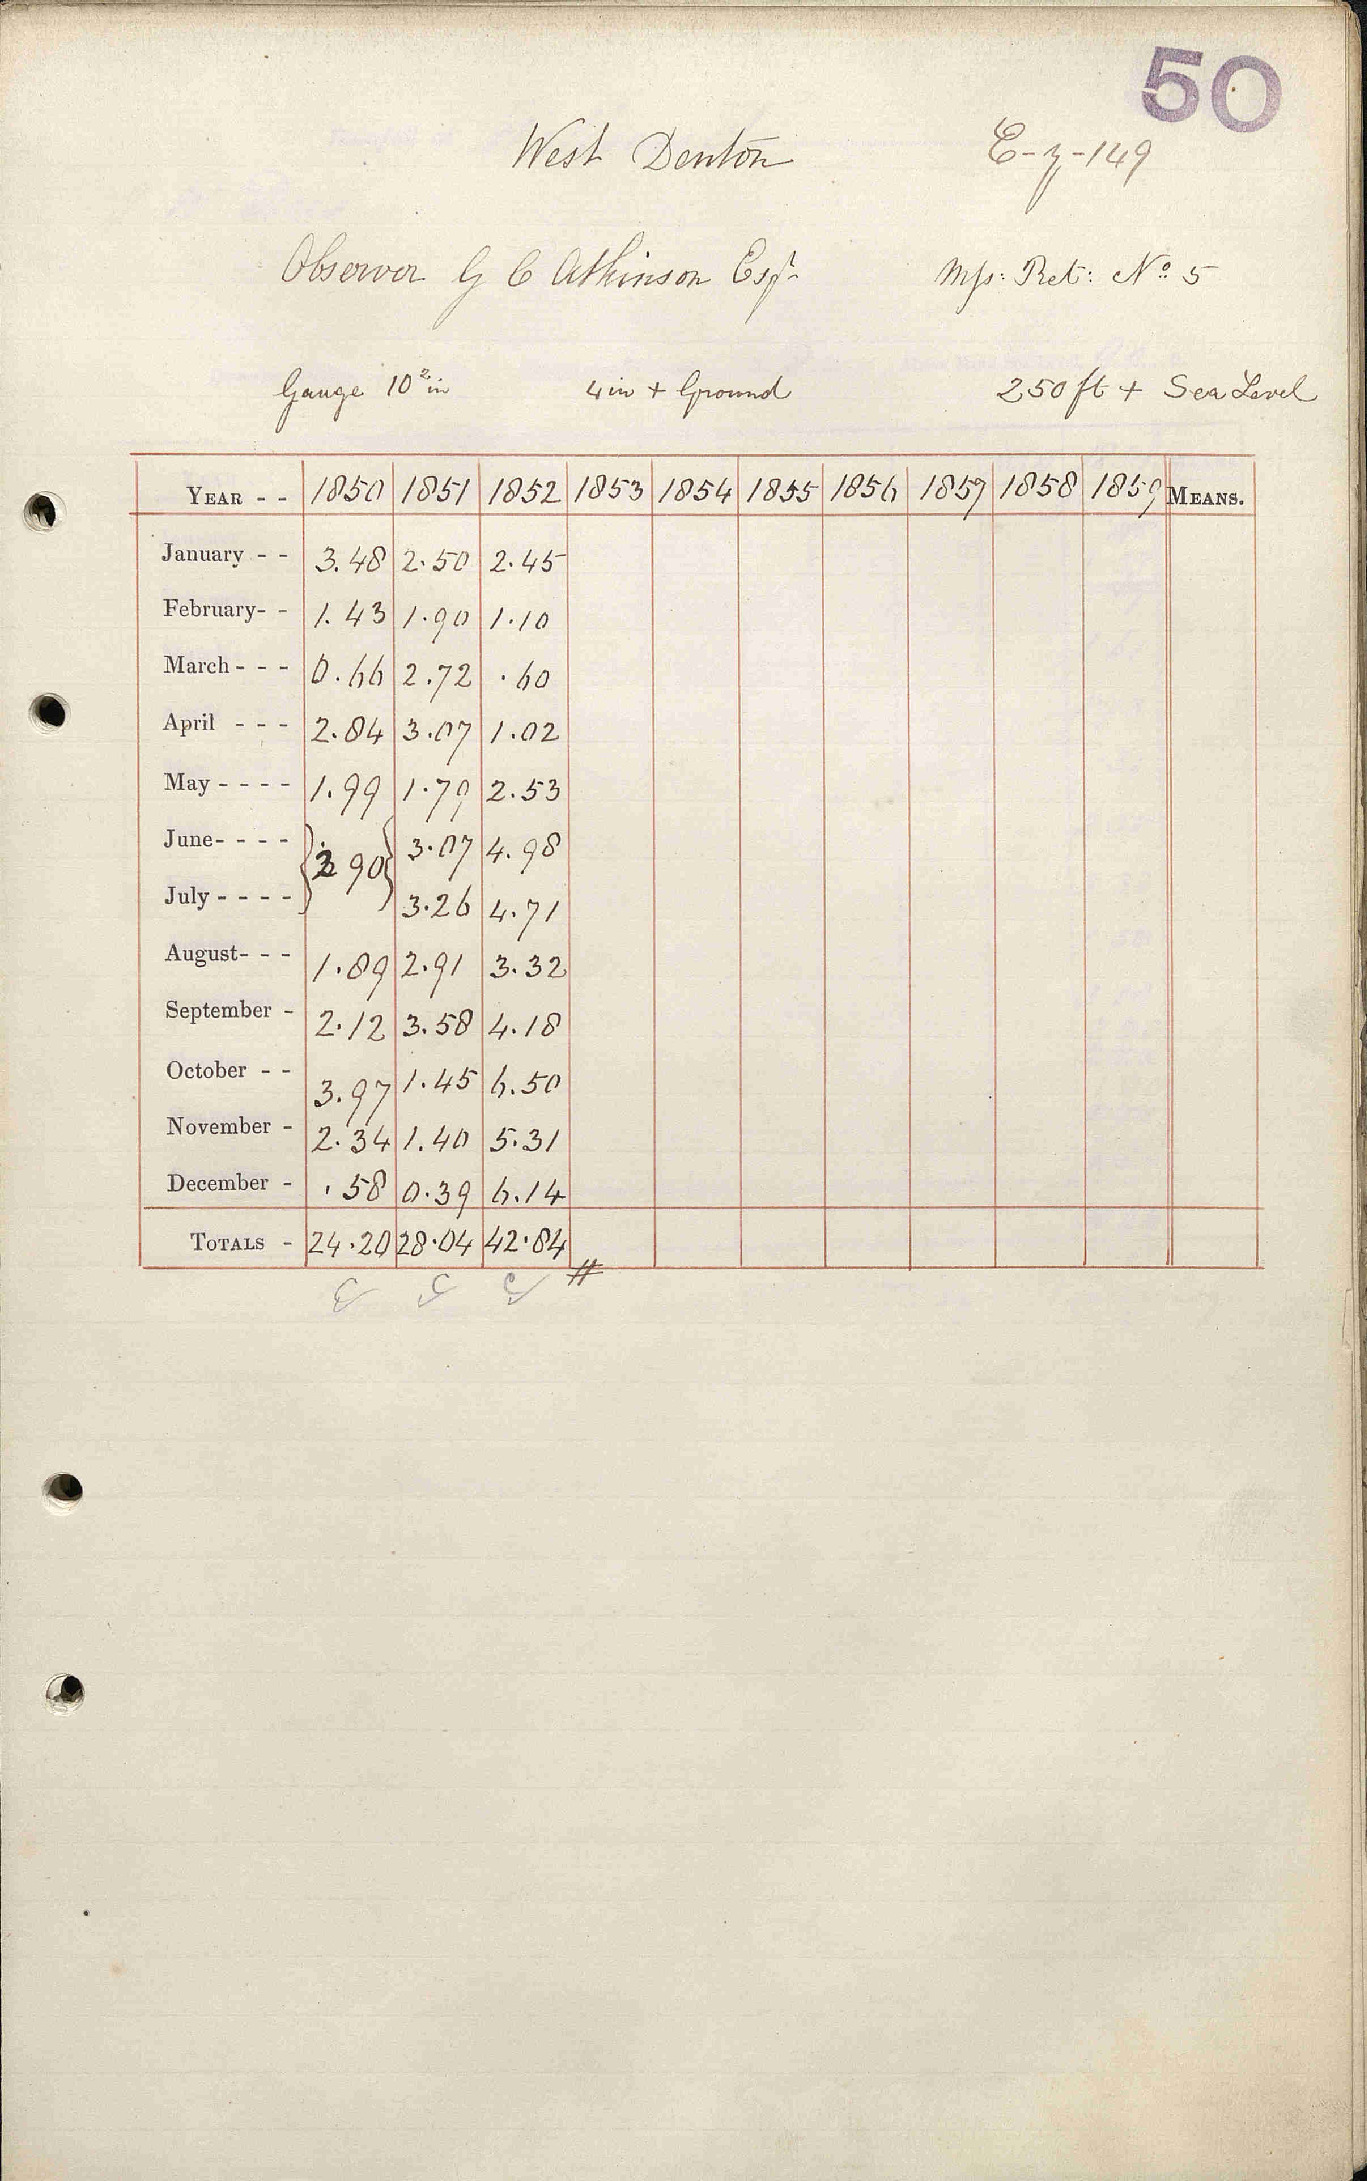 50
West Denton E-y-149
Observer G C Atkinson Esqr Mss: Ret: No 5
Gauge 10 in 4 in + Ground 250 ft + Sea Level
YEAR - - 1850 1851 1852 1853 1854 1855 1856 1857 1858 1859 MEANS.
January - - 3.48 2.50 2.45
February- - 1.43 1.90 1.10
March - - - 0.66 2.72 .60
April - - - 2.84 3.07 1.02
May - - - - 1.99 1.79 2.53
June- - - - } 2.90 { 3.07 4.98
July - - - - 3.26 4.71
August- - - 1.89 2.91 3.32
September - 2.12 3.58 4.18
October - - 3.97 1.45 6.50
November - 2.34 1.40 5.31
December - .58 0.39 6.14
TOTALS - 24.20 28.04 42.84